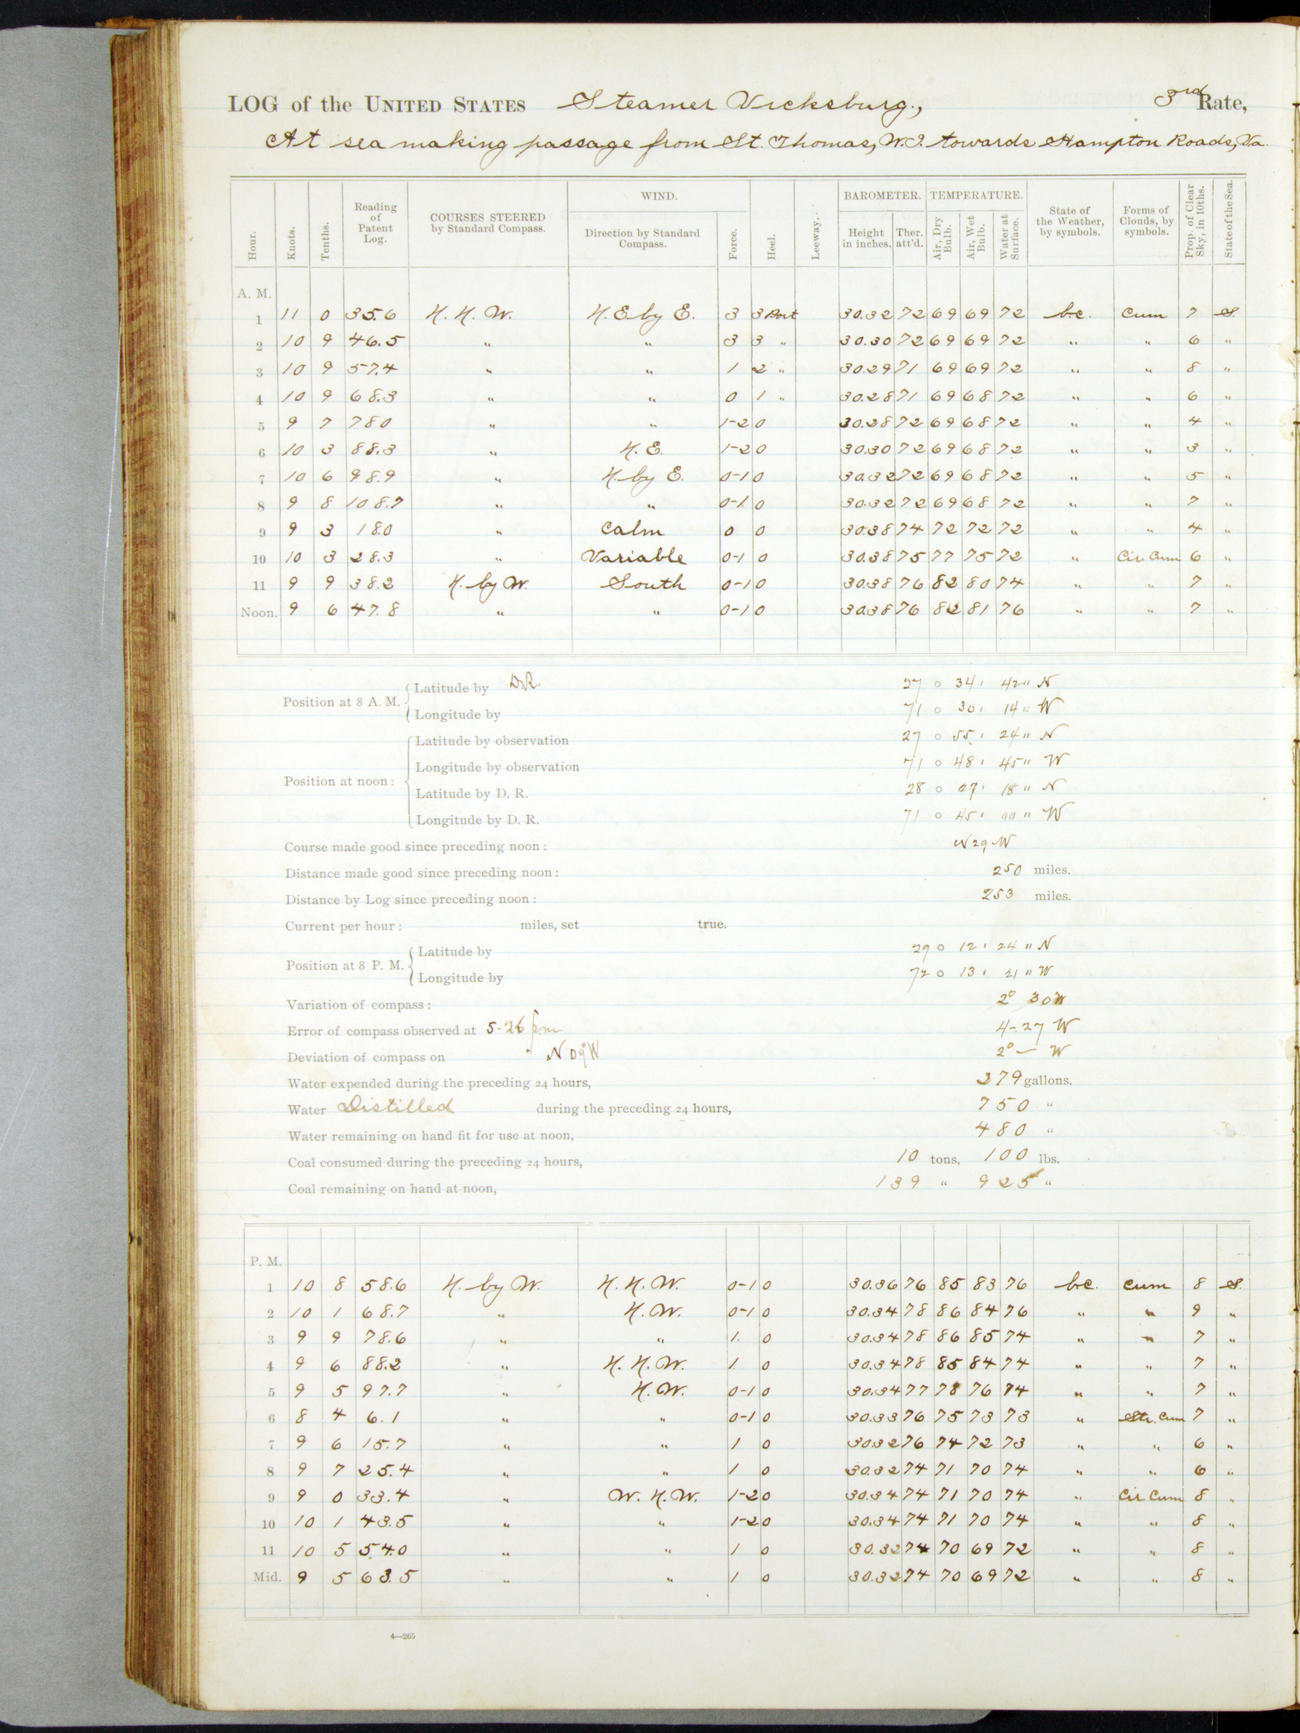 LOG of the UNITED STATES Steamer Vicksburg, 3rd Rate,
At sea making passage from St. Thomas, W.I. towards Hampton Roads, Va.
Hour. Knots. Tenths. Reading of Patent Log. COURSES STEERED by Standard Compass. WIND. Direction by Standard Compass. Force. Heel. Leeway. BAROMETER. Height in inches. Ther. att'd. TEMPERATURE. Air, Dry Bulb. Air, Wet Bulb. Water at Surface. State of the Weather, by symbols. Forms of Clouds, by symbols. Prop. of Clear Sky, in 10ths. State of the Sea.
A. M.
1 11 0 35.6 N. N. W. N. E by E. 3 3 Port 30.32 72 69 69 72 bc. Cum 7 S.
2 10 9 46.5 " " 3 3 " 30.30 72 69 69 72 " " 6 "
3 10 9 57.4 " " 1 2 " 30.29 71 69 69 72 " " 8 "
4 10 9 68.3 " " 0 1 " 30.28 71 69 68 72 " " 6 "
5 9 7 78.0 " " 1-2 0 30.28 72 69 68 72 " " 4 "
6 10 3 88.3 " N. E. 1-2 0 30.30 72 69 68 72 " " 3 "
7 10 6 98.9 " N. by E. 0-1 0 30.32 72 69 68 72 " " 5 "
8 9 8 108.7 " " 0-1 0 30.32 72 69 68 72 " " 7 "
9 9 3 18.0 " Calm 0 0 30.38 74 72 72 72 " " 4 "
10 10 3 28.3 " Variable 0-1 0 30.38 75 77 75 72 " Cir. Cum 6 "
11 9 9 38.2 N. by W. South 0-1 0 30.38 76 82 80 74 " " 7 "
Noon. 9 6 47.8 " " 0-1 0 30.38 76 82 81 76 " " 7 "
Position at 8 A. M. Latitude by D.R. 27 ° 34 ' 42 " N
Longitude by 71 ° 30 ' 14 " W
Position at noon: Latitude by observation 27 ° 55 ' 24 " N
Longitude by observation 71 ° 48 ' 45 " W
Latitude by D. R. 28 ° 07 ' 18 " N
Longitude by D. R. 71 ° 45 ' 00 " W
Course made good since preceding noon: N 29 W
Distance made good since preceding noon: 250 miles.
Distance by Log since preceding noon: 253 miles.
Current per hour: miles, set true.
Position at 8 P. M. Latitude by 29 ° 12 ' 24 " N
Longitude by 72 ° 13 ' 21 " W
Variation of compass: 2° 30 W
Error of compass observed at 5-26 pm 4-27 W
Deviation of compass on N 09° W 2° — W
Water expended during the preceding 24 hours, 379 gallons.
Water Distilled during the preceding 24 hours, 750 "
Water remaining on hand fit for use at noon, 480 "
Coal consumed during the preceding 24 hours, 10 tons, 100 lbs.
Coal remaining on hand at noon, 139 " 925 "
P. M.
1 10 8 58.6 N. by W. N. N. W. 0-1 0 30.36 76 85 83 76 bc. Cum 8 S.
2 10 1 68.7 " N. W. 0-1 0 30.34 78 86 84 76 " " 9 "
3 9 9 78.6 " " 1. 0 30.34 78 86 85 74 " " 7 "
4 9 6 88.2 " N. N. W. 1. 0 30.34 78 85 84 74 " " 7 "
5 9 5 97.7 " N. W. 0-1 0 30.34 77 78 76 74 " " 7 "
6 8 4 6.1 " " 0-1 0 30.33 76 75 73 73 " Str. Cum 7 "
7 9 6 15.7 " " 1 0 30.32 76 74 72 73 " " 6 "
8 9 7 25.4 " " 1 0 30.32 74 71 70 74 " " 6 "
9 9 0 33.4 " W. N. W. 1-2 0 30.34 74 71 70 74 " Cir Cum 8 "
10 10 1 43.5 " " 1-2 0 30.34 74 71 70 74 " " 8 "
11 10 5 54.0 " " 1 0 30.32 74 70 69 72 " " 8 "
Mid. 9 5 63.5 " " 1 0 30.32 74 70 69 72 " " 8 "
4—265